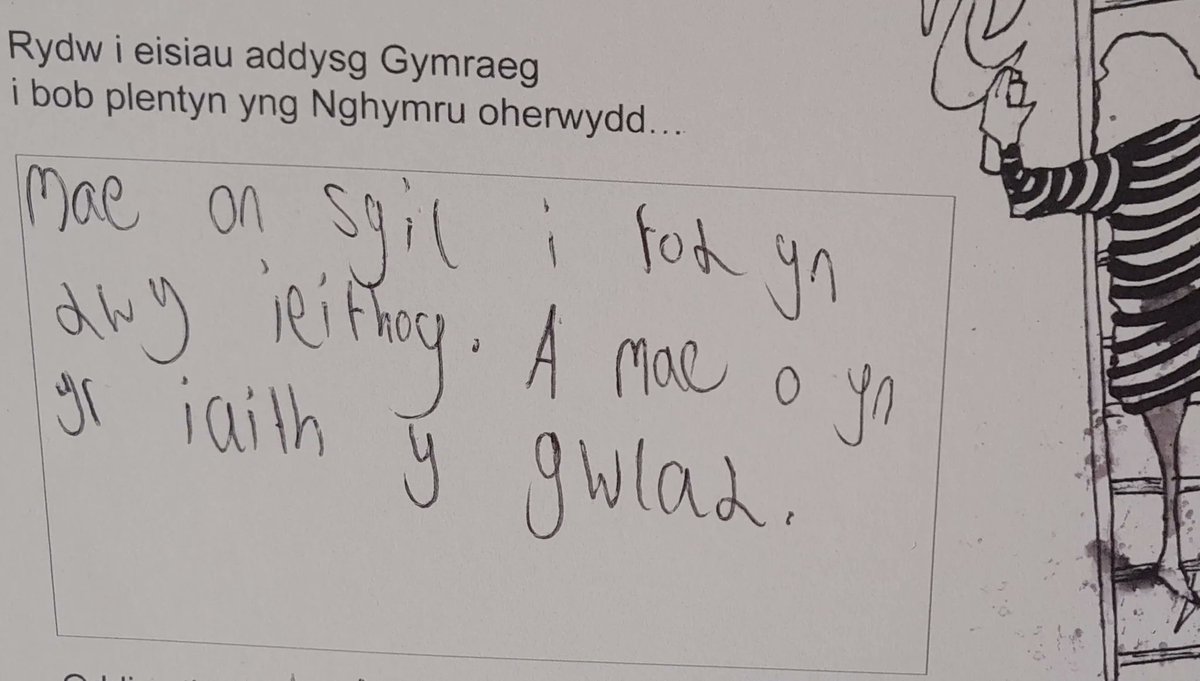 Rydw i eisiau addysg Gymraeg
i bob plentyn yng Nghymru oherwydd...
Mae on sgil i fod yn
dwy ieithog. A mae o yn
yr iaith y gwlad.